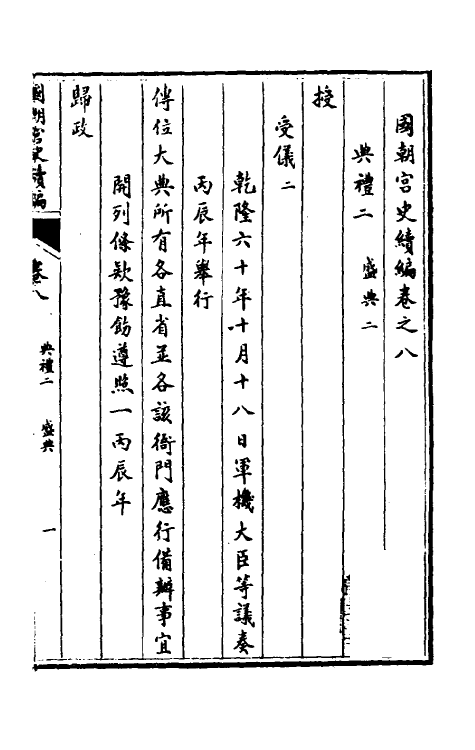 國朝宮史續編卷之八
典禮二 盛典二
授
受儀二
乾隆六十年十月十八日軍機大臣等議奏
丙辰年舉行
傳位大典所有各直省並各該衙門應行備辦事宜
開列條款豫飭遵照一丙辰年
歸政
國朝宮史續編 卷八 典禮二 盛典 一